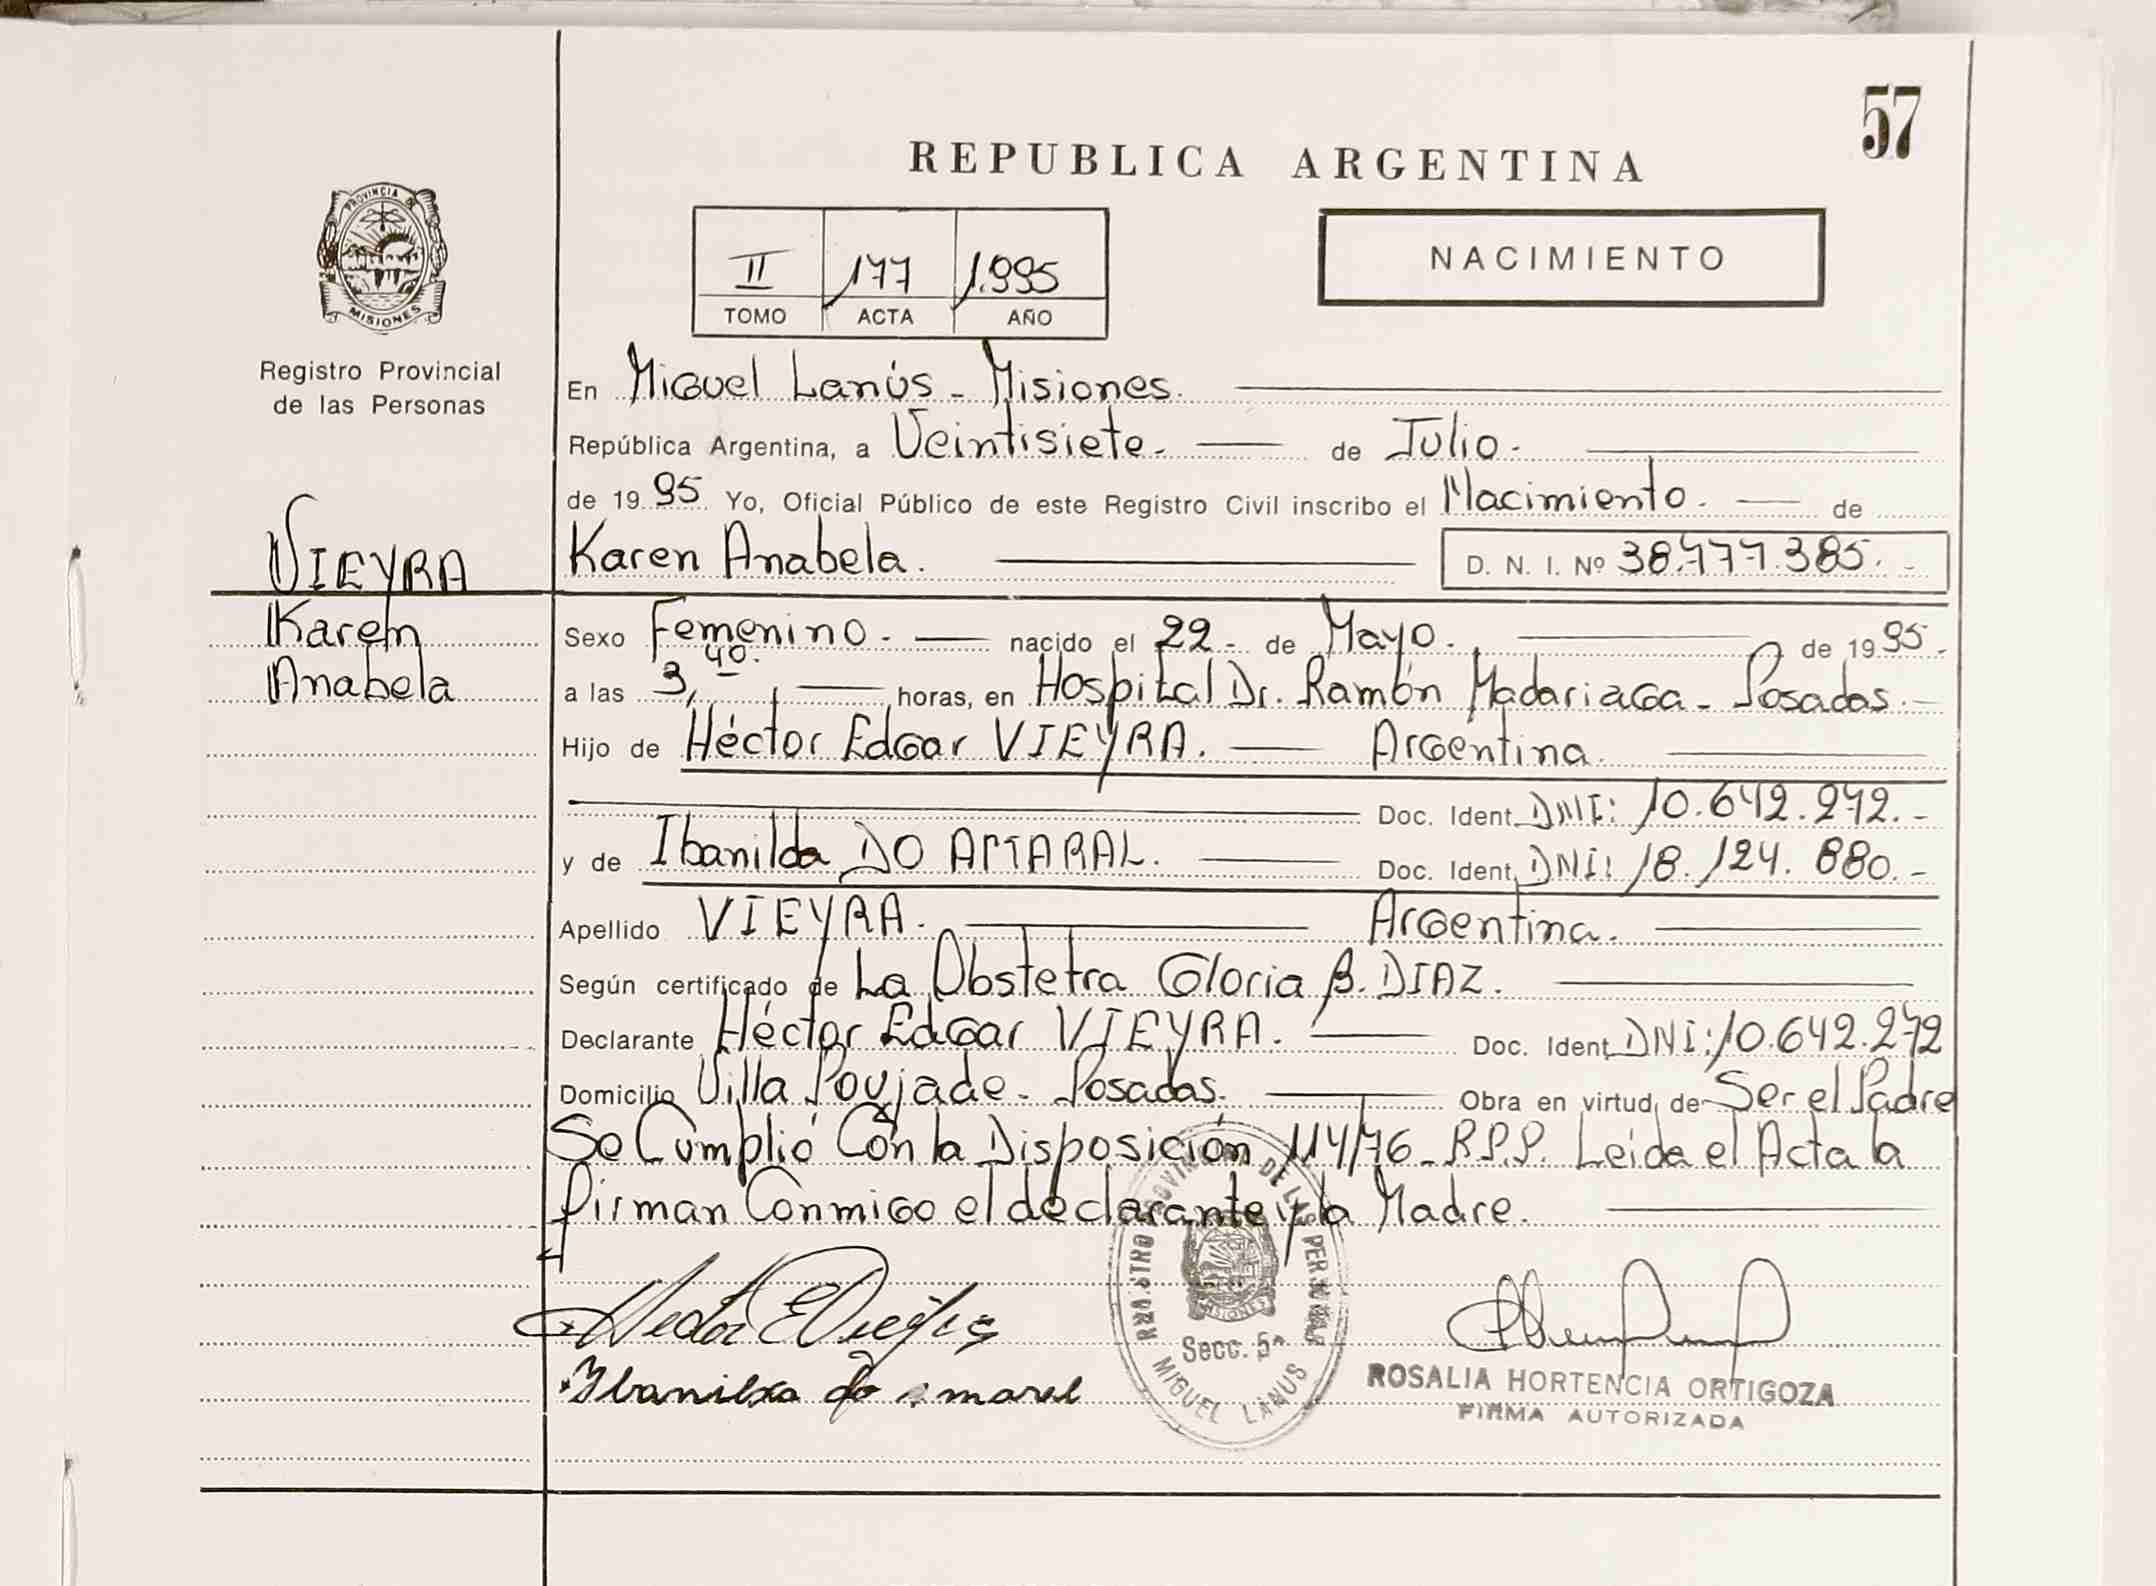 57
REPUBLICA ARGENTINA
PROVINCIA DE
MISIONES
Registro Provincial
de las Personas
II 177 1.995
TOMO ACTA AÑO
NACIMIENTO
En Miguel Lanús - Misiones.
República Argentina, a Veintisiete. de Julio.
de 19 95 Yo, Oficial Público de este Registro Civil inscribo el Nacimiento. de
Karen Anabela. D. N. I. Nº 38.777.385.-
VIEYRA
Karem
Anabela
Sexo Femenino. nacido el 22 - de Mayo. de 19 95.
a las 3,40. horas, en Hospital Dr. Ramón Madariaga - Posadas.-
Hijo de Héctor Edgar VIEYRA. Argentina.
Doc. Ident. DNI: 10.642.272.-
y de Ibanilda DO AMARAL. Doc. Ident. DNI: 18.124.880.-
Apellido VIEYRA. Argentina.
Según certificado de La Obstetra Gloria B. DIAZ.
Declarante Héctor Edgar VIEYRA. Doc. Ident. DNI: 10.642.272
Domicilio Villa Poujade - Posadas. Obra en virtud de Ser el Padre
Se Cumplió Con la Disposición 114/76 - R.P.P. Leida el Acta la
firman Conmigo el declarante y la Madre.
Hector E Vieyra
Ibanilda do amaral
REGISTRO PROVINCIAL DE LAS PERSONAS
MISIONES
Secc. 5ª
MIGUEL LANUS
ROSALIA HORTENCIA ORTIGOZA
FIRMA AUTORIZADA